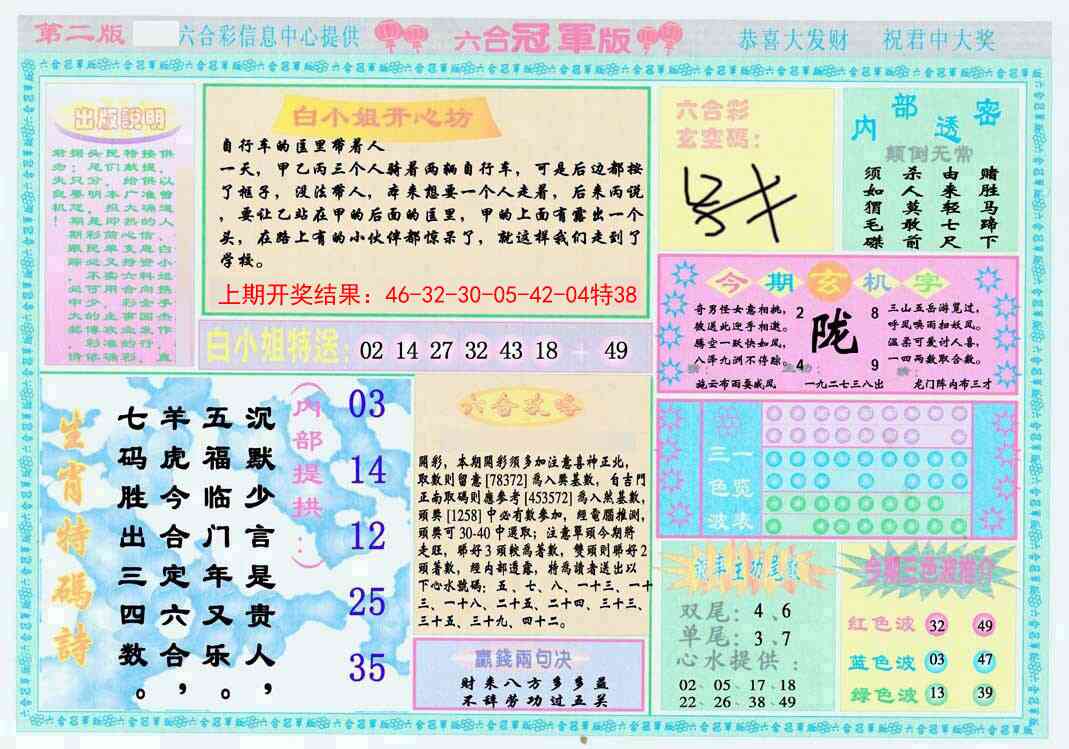 第二版
六合彩信息中心提供
六合冠軍版
恭喜大发财
祝君中大奖
出版説明
白小姐开心坊
自行车的匡里带着人
一天，甲乙丙三个人骑着两辆自行车，可是后边都按
了框子，没法带人，本来想要一个人走着，后来丙说
，要让乙站在甲的后面的匡里，甲的上面有露出一个
头，在路上有的小伙伴都惊呆了，就这样我们走到了
学校。
上期开奖结果：46-32-30-05-42-04特38
白小姐特送：02 14 27 32 43 18 + 49
六合彩
玄空碼：
内部透密
颠倒无常
赌胜马蹄下
由来轻七尺
杀人莫敢前
须如猬毛磔
今期玄机字
奇男怪女意相挑，
彼送此迎手相邀。
腾空一跃快如风，
八洋九洲不停踪。
施云布雨耍威风
2
8
陇
4
9
一九二七三八出
三山五岳游览过，
呼风唤雨扫妖风。
温柔可爱讨人喜，
一四两数取合数。
龙门阵内布三才
三色波
一览表
生肖特碼詩
沉默少言是贵人，
五福临门年又乐。
羊虎今合定六合，
七码胜出三四数。
（内部提拱：）
03
14
12
25
35
六合攻略
開彩，本期開彩須多加注意喜神正北，
取數則留意[78372]為入奬基數，自吉門
正南取碼則應參考[453572]為入然基數，
頭奬[1258]中必有數參加，經電腦推測，
頭奬可30-40中選取；注意單頭今期將
走旺，睇好3頭較為著數，雙頭則睇好2
頭著數，經内部透露，特為讀者送出以
下心水號碼：五、七、八、一十三、一十
三、一十八、二十五、二十四、三十三、
三十五、三十九、四十二。
贏錢兩句决
财来八方多多益
不辞劳功过五关
双尾：4、6
单尾：3、7
心水提供：
02、05、17、18
22、26、38、49
今期三色波推介
红色波 32 49
蓝色波 03 47
绿色波 13 39